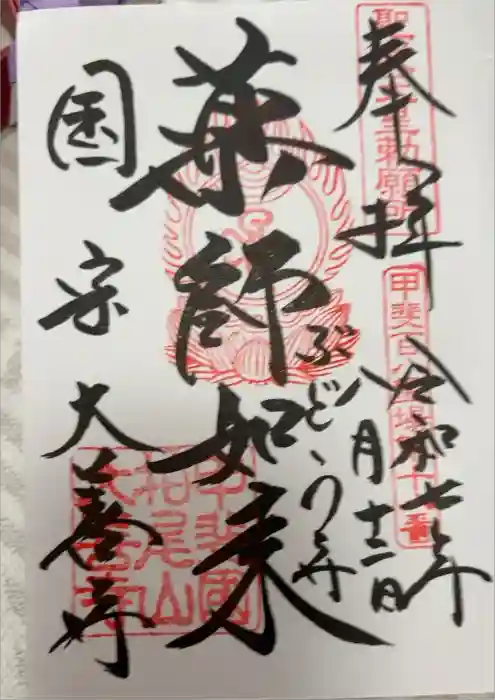 奉拝
聖武天皇勅願所
令和七年
八月十二日
薬師如来
ぶどう寺
国宝 大善寺
甲斐國
柏尾山
大善寺